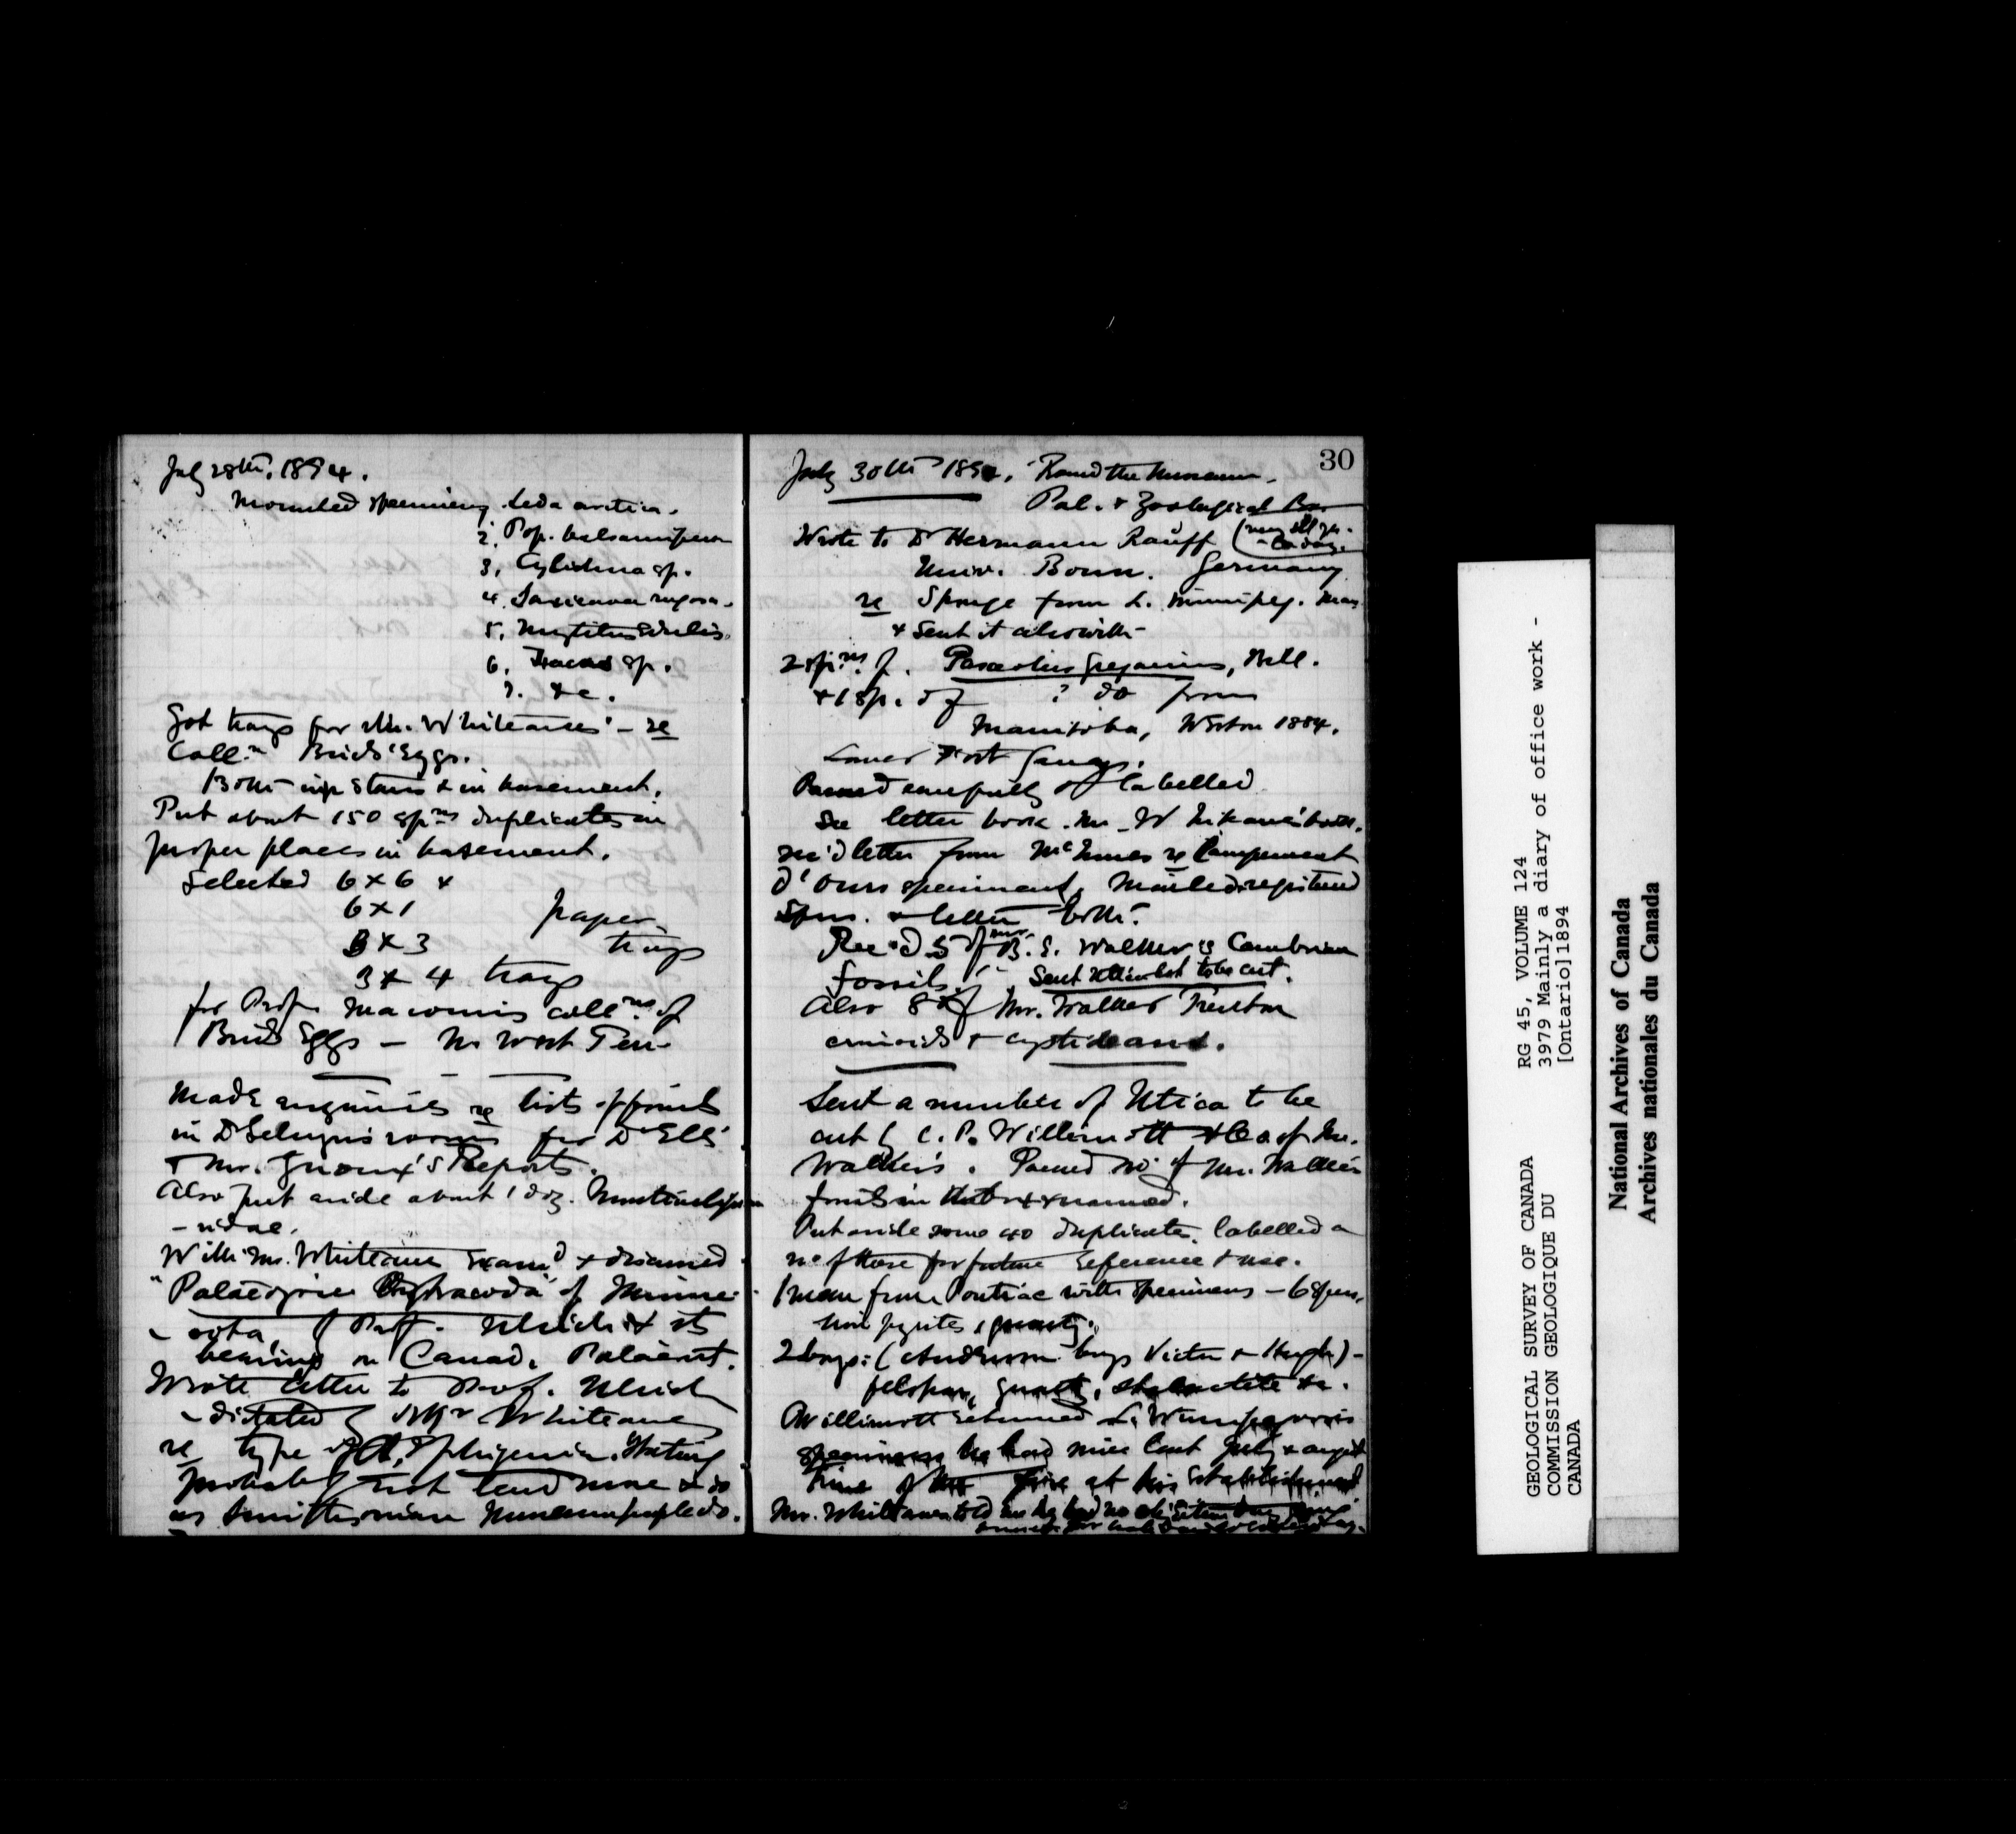 July 28th, 1894.
Mounted specimens Leda arctica.
2. Pop. balsamifera
3, Cylichna sp.
4. Saxicava rugosa.
5, Mytilus edulis.
6, sp.
7. &c.
Got trays for Mr. Whiteaves' - re
Coll.n Birds' Eggs.
Both up stairs & in basement.
Put about 150 spms duplicates in
proper places in basement.
Selected 6 x 6 &
6 x 1 paper
3 x 3 trays
3 x 4 trays
for Prof. Macoun's coll.ns of
Birds Eggs — N. West Terr.
Made enquiries re lists of fossils
in Dr Selwyn's room for Dr Ells'
& Mr. Giroux's Reports.
Also put aside about 1 doz.
- nidae.
With Mr. Whiteaves Examd & discussed
"Palaeozoic Ostracoda" of Minne-
- sota, of Prof. Ulrich & its
bearing on Canad. Palaeont.
Wrote letter to Prof. Ulrich
- dictated by Mr Whiteaves
re type of Stating
probably not lend more & do
as Smithsonian Museum people do.
30
July 30th 1894. Round the Museum.
Pal. & Zoological
Wrote to Dr Hermann Rauff
Univ. Bonn. Germany
re Sponge from L. Winnipeg. Man.
& Sent it also with
2 spms of. Pasceolus gregarius, Bill.
& 1 sp. of ? do from
Manitoba, Weston 1884.
Lower Fort Garry.
Packed carefully & labelled
See letter book. Mr. Whiteaves' book.
rec'd letter from McInnes re Campement
d'Ours specimens. Mailed registered
Spms. & letter both.
Rec'd 5 of Mr. B. E. Walker's Cambrian
fossils. Sent to be cut.
Also 8 of Mr. Walker Trenton
crinoids & cystideans.
Sent a number of Utica to be
cut by C. P. Willimott & Co. of Mr.
Walker's. Placed no. of Mr. Walker's
fossils in & named.
Put aside some 40 duplicates. labelled a
no of these for future reference & use.
1 man from Pontiac with specimens — 6 spms.
iron pyrites, quartz.
2 boys: (Anderson boys Victor & Hugh) -
felspar, quartz, stalactite &c.
Willimott returned L. Winnipeg
specimens he had since last July &
time of fire at his Establishment
Mr. Whiteaves told me he had no objection
GEOLOGICAL SURVEY OF CANADA
COMMISSION GEOLOGIQUE DU
CANADA
RG 45, VOLUME 124
3979 Mainly a diary of office work -
[Ontario]1894
National Archives of Canada
Archives nationales du Canada